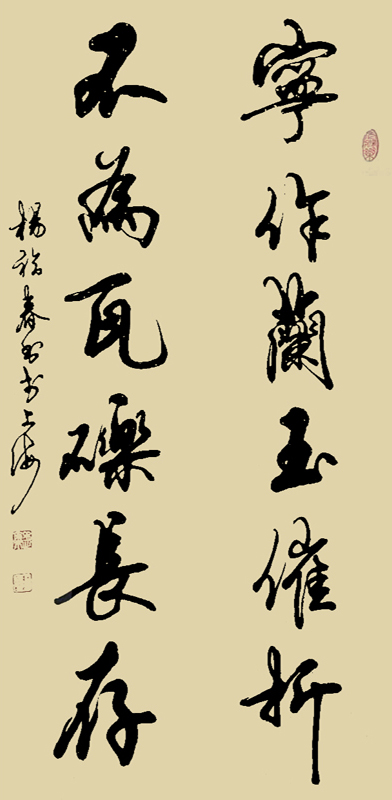 寧作蘭玉催折
不為瓦礫長存
楊福春書於上海